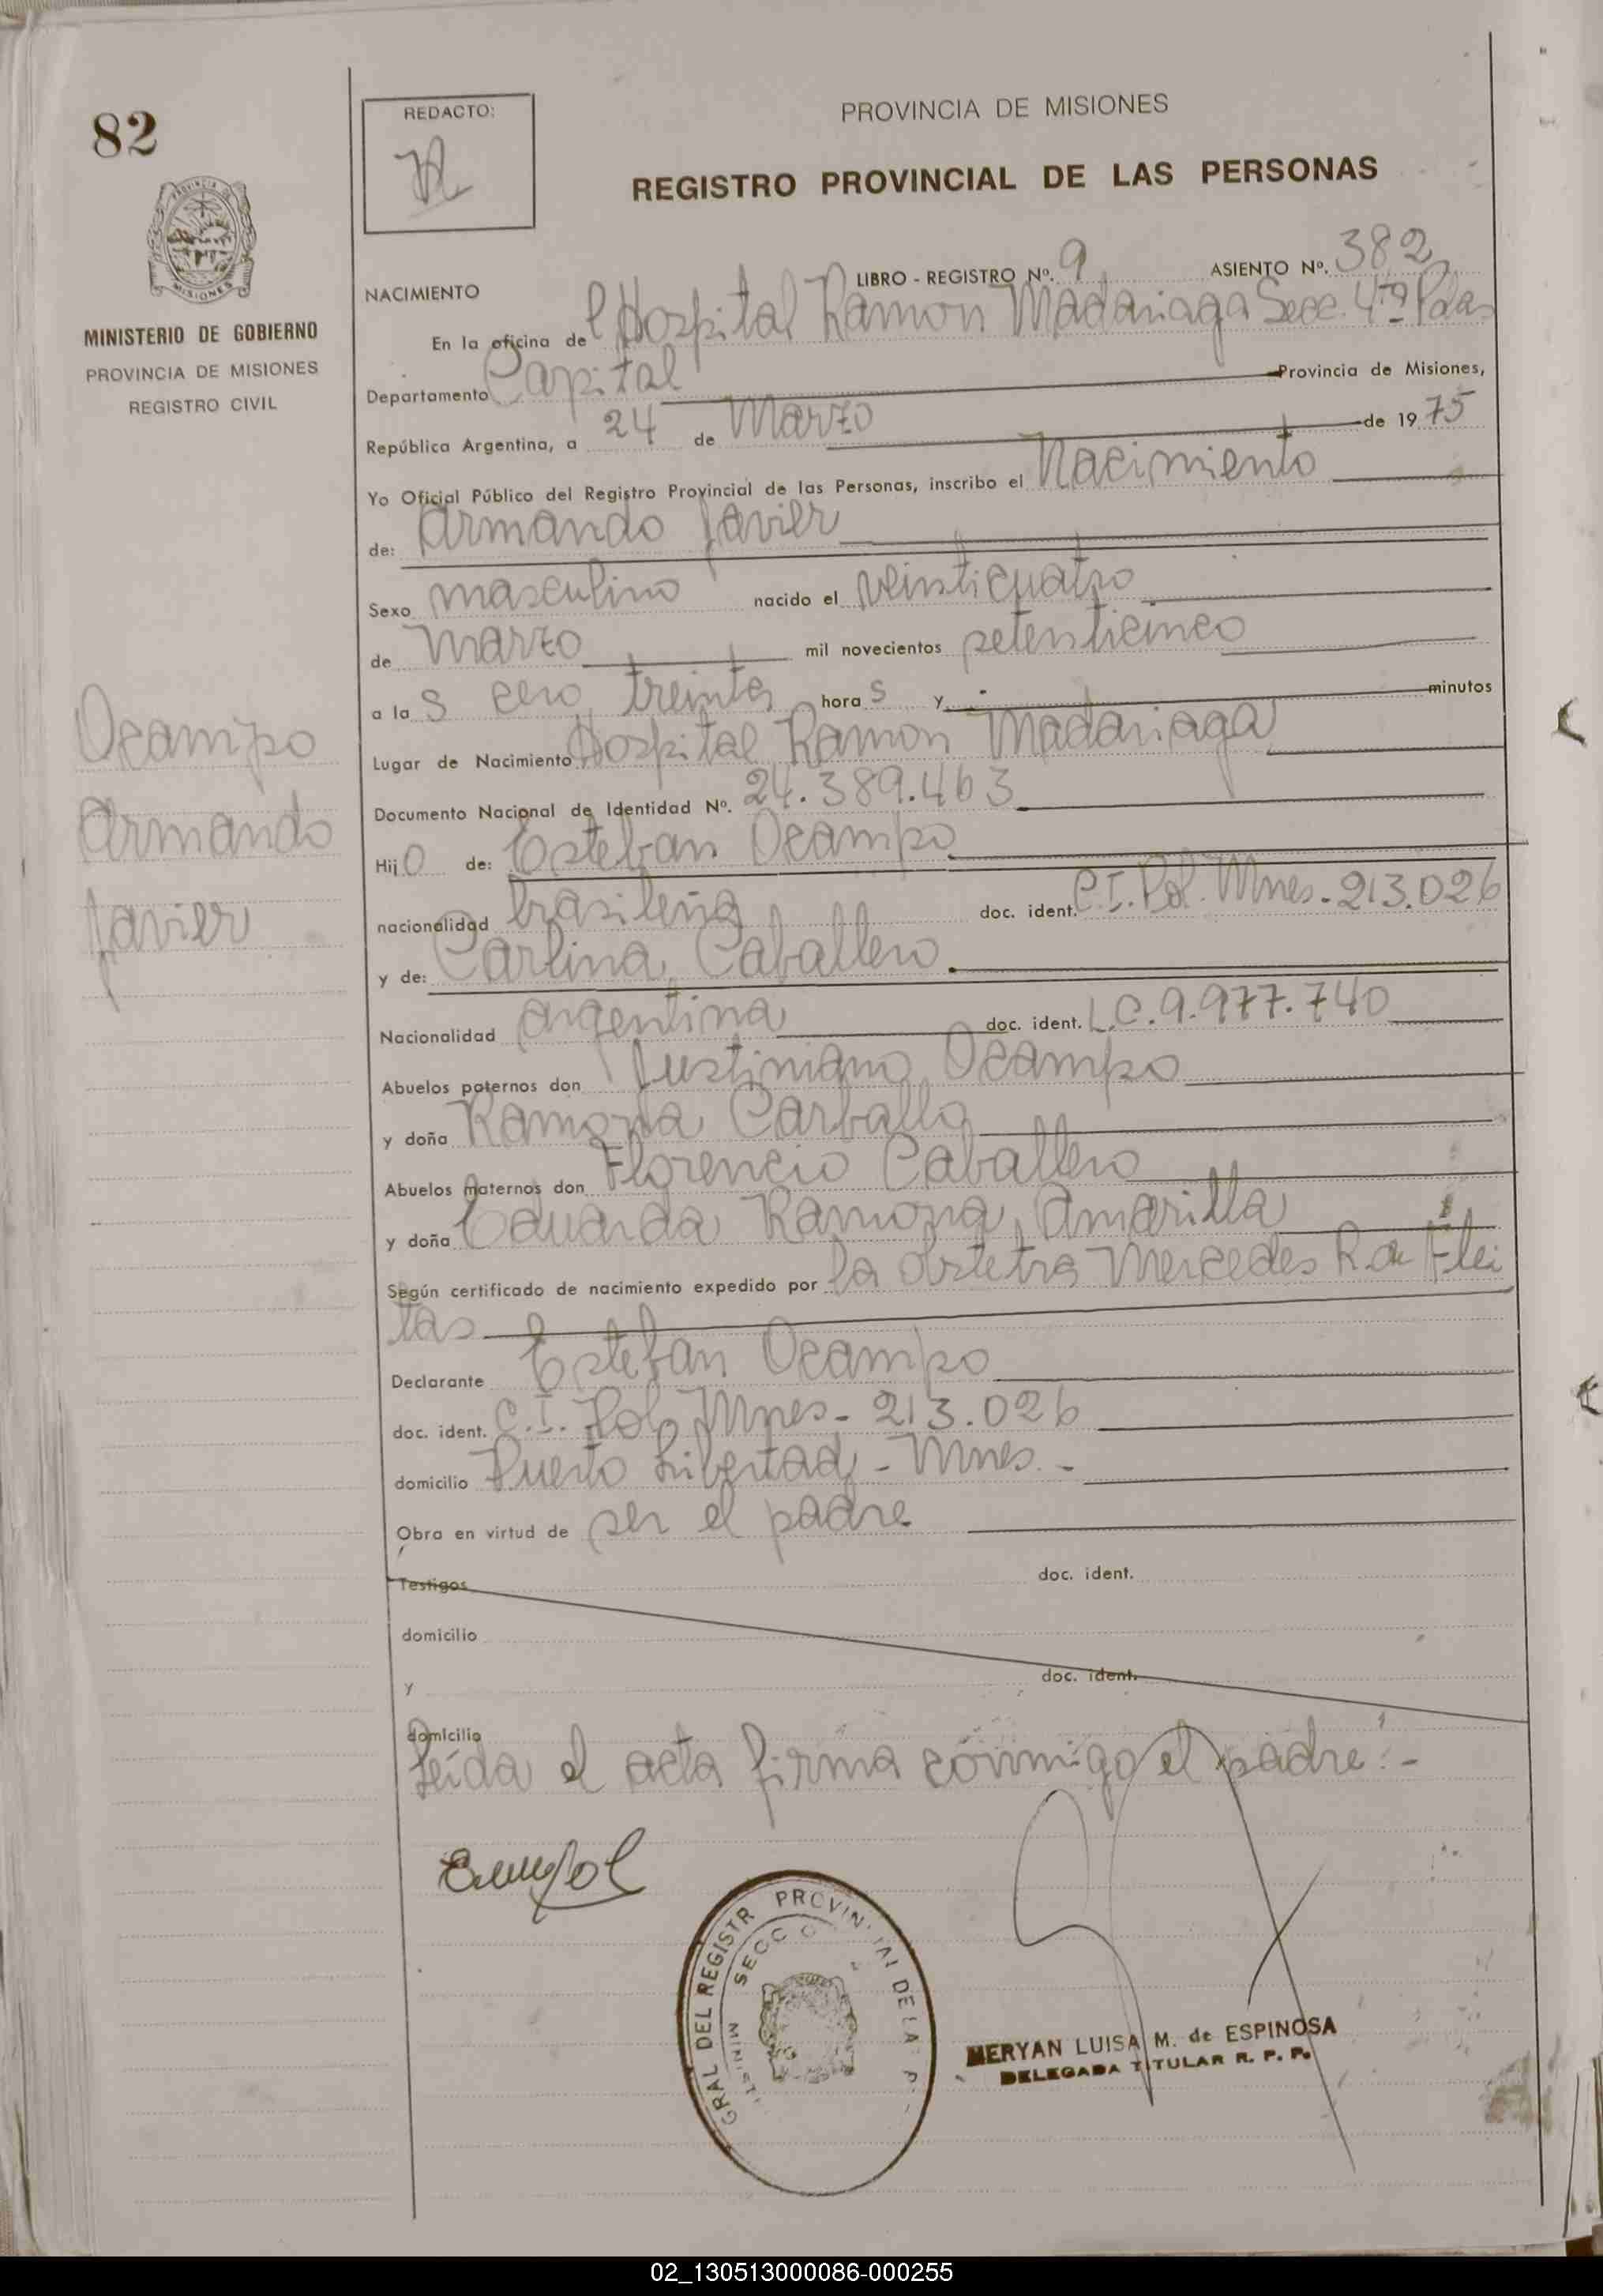 82
REDACTO:
PROVINCIA DE MISIONES
REGISTRO PROVINCIAL DE LAS PERSONAS
MISIONES
MINISTERIO DE GOBIERNO
PROVINCIA DE MISIONES
REGISTRO CIVIL
NACIMIENTO LIBRO - REGISTRO Nº. 9 ASIENTO Nº. 382
En la oficina del Hospital Ramon Madariaga Secc. 4ta Pdas
Departamento Capital Provincia de Misiones,
República Argentina, a 24 de Marzo de 1975
Yo Oficial Público del Registro Provincial de las Personas, inscribo el Nacimiento
de: Armando Javier
Sexo masculino nacido el veinticuatro
de Marzo mil novecientos setenticinco
a las cero treinta horas y minutos
Lugar de Nacimiento Hospital Ramon Madariaga
Documento Nacional de Identidad Nº. 24.389.463
Ocampo
Armando
Javier
Hijo de: Esteban Ocampo
nacionalidad brasileña doc. ident. C.I. Pol. Mnes - 213.026
y de: Carlina Caballero
Nacionalidad argentina doc. ident. L.C. 9.977.740
Abuelos paternos don Justiniano Ocampo
y doña Ramona Carballo
Abuelos maternos don Florencio Caballero
y doña Eduarda Ramona Amarilla
Según certificado de nacimiento expedido por la obstetra Mercedes R. de Flei
tas
Declarante Esteban Ocampo
doc. ident. C.I. Pol. Mnes - 213.026
domicilio Puerto Libertad - Mnes. -
Obra en virtud de ser el padre
Testigos doc. ident.
domicilio
y doc. ident.
domicilio
Leída el acta firma conmigo el padre. -
GRAL DEL REGISTR PROVIN
SECC
MERYAN LUISA M. de ESPINOSA
DELEGADA TITULAR R. P. P.
02_130513000086-000255